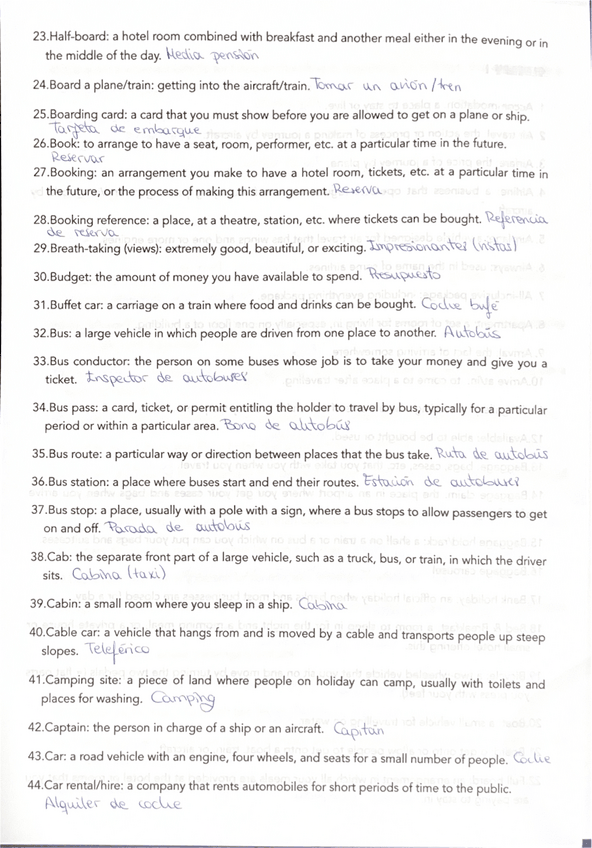 23.Half-board: a hotel room combined with breakfast and another meal either in the evening or in
the middle of the day. Media pensión
24.Board a plane/train: getting into the aircraft/train. Tomar un avión/tren
25.Boarding card: a card that you must show before you are allowed to get on a plane or ship.
Tarjeta de embarque
26.Book: to arrange to have a seat, room, performer, etc. at a particular time in the future.
Reservar
27.Booking: an arrangement you make to have a hotel room, tickets, etc. at a particular time in
the future, or the process of making this arrangement. Reserva
28.Booking reference: a place, at a theatre, station, etc. where tickets can be bought. Referencia
de reserva
29.Breath-taking (views): extremely good, beautiful, or exciting. Impresionantes (vistas)
30.Budget: the amount of money you have available to spend. Presupuesto
31.Buffet car: a carriage on a train where food and drinks can be bought. Coche bufé
32.Bus: a large vehicle in which people are driven from one place to another. Autobús
33.Bus conductor: the person on some buses whose job is to take your money and give you a
ticket. Inspector de autobuses
34.Bus pass: a card, ticket, or permit entitling the holder to travel by bus, typically for a particular
period or within a particular area. Bono de autobús
35.Bus route: a particular way or direction between places that the bus take. Ruta de autobús
36.Bus station: a place where buses start and end their routes. Estación de autobuses
37.Bus stop: a place, usually with a pole with a sign, where a bus stops to allow passengers to get
on and off. Parada de autobús
38.Cab: the separate front part of a large vehicle, such as a truck, bus, or train, in which the driver
sits. Cabina (taxi)
39.Cabin: a small room where you sleep in a ship. Cabina
40.Cable car: a vehicle that hangs from and is moved by a cable and transports people up steep
slopes. Teleférico
41.Camping site: a piece of land where people on holiday can camp, usually with toilets and
places for washing. Camping
42.Captain: the person in charge of a ship or an aircraft. Capitán
43.Car: a road vehicle with an engine, four wheels, and seats for a small number of people. Coche
44.Car rental/hire: a company that rents automobiles for short periods of time to the public.
Alquiler de coche